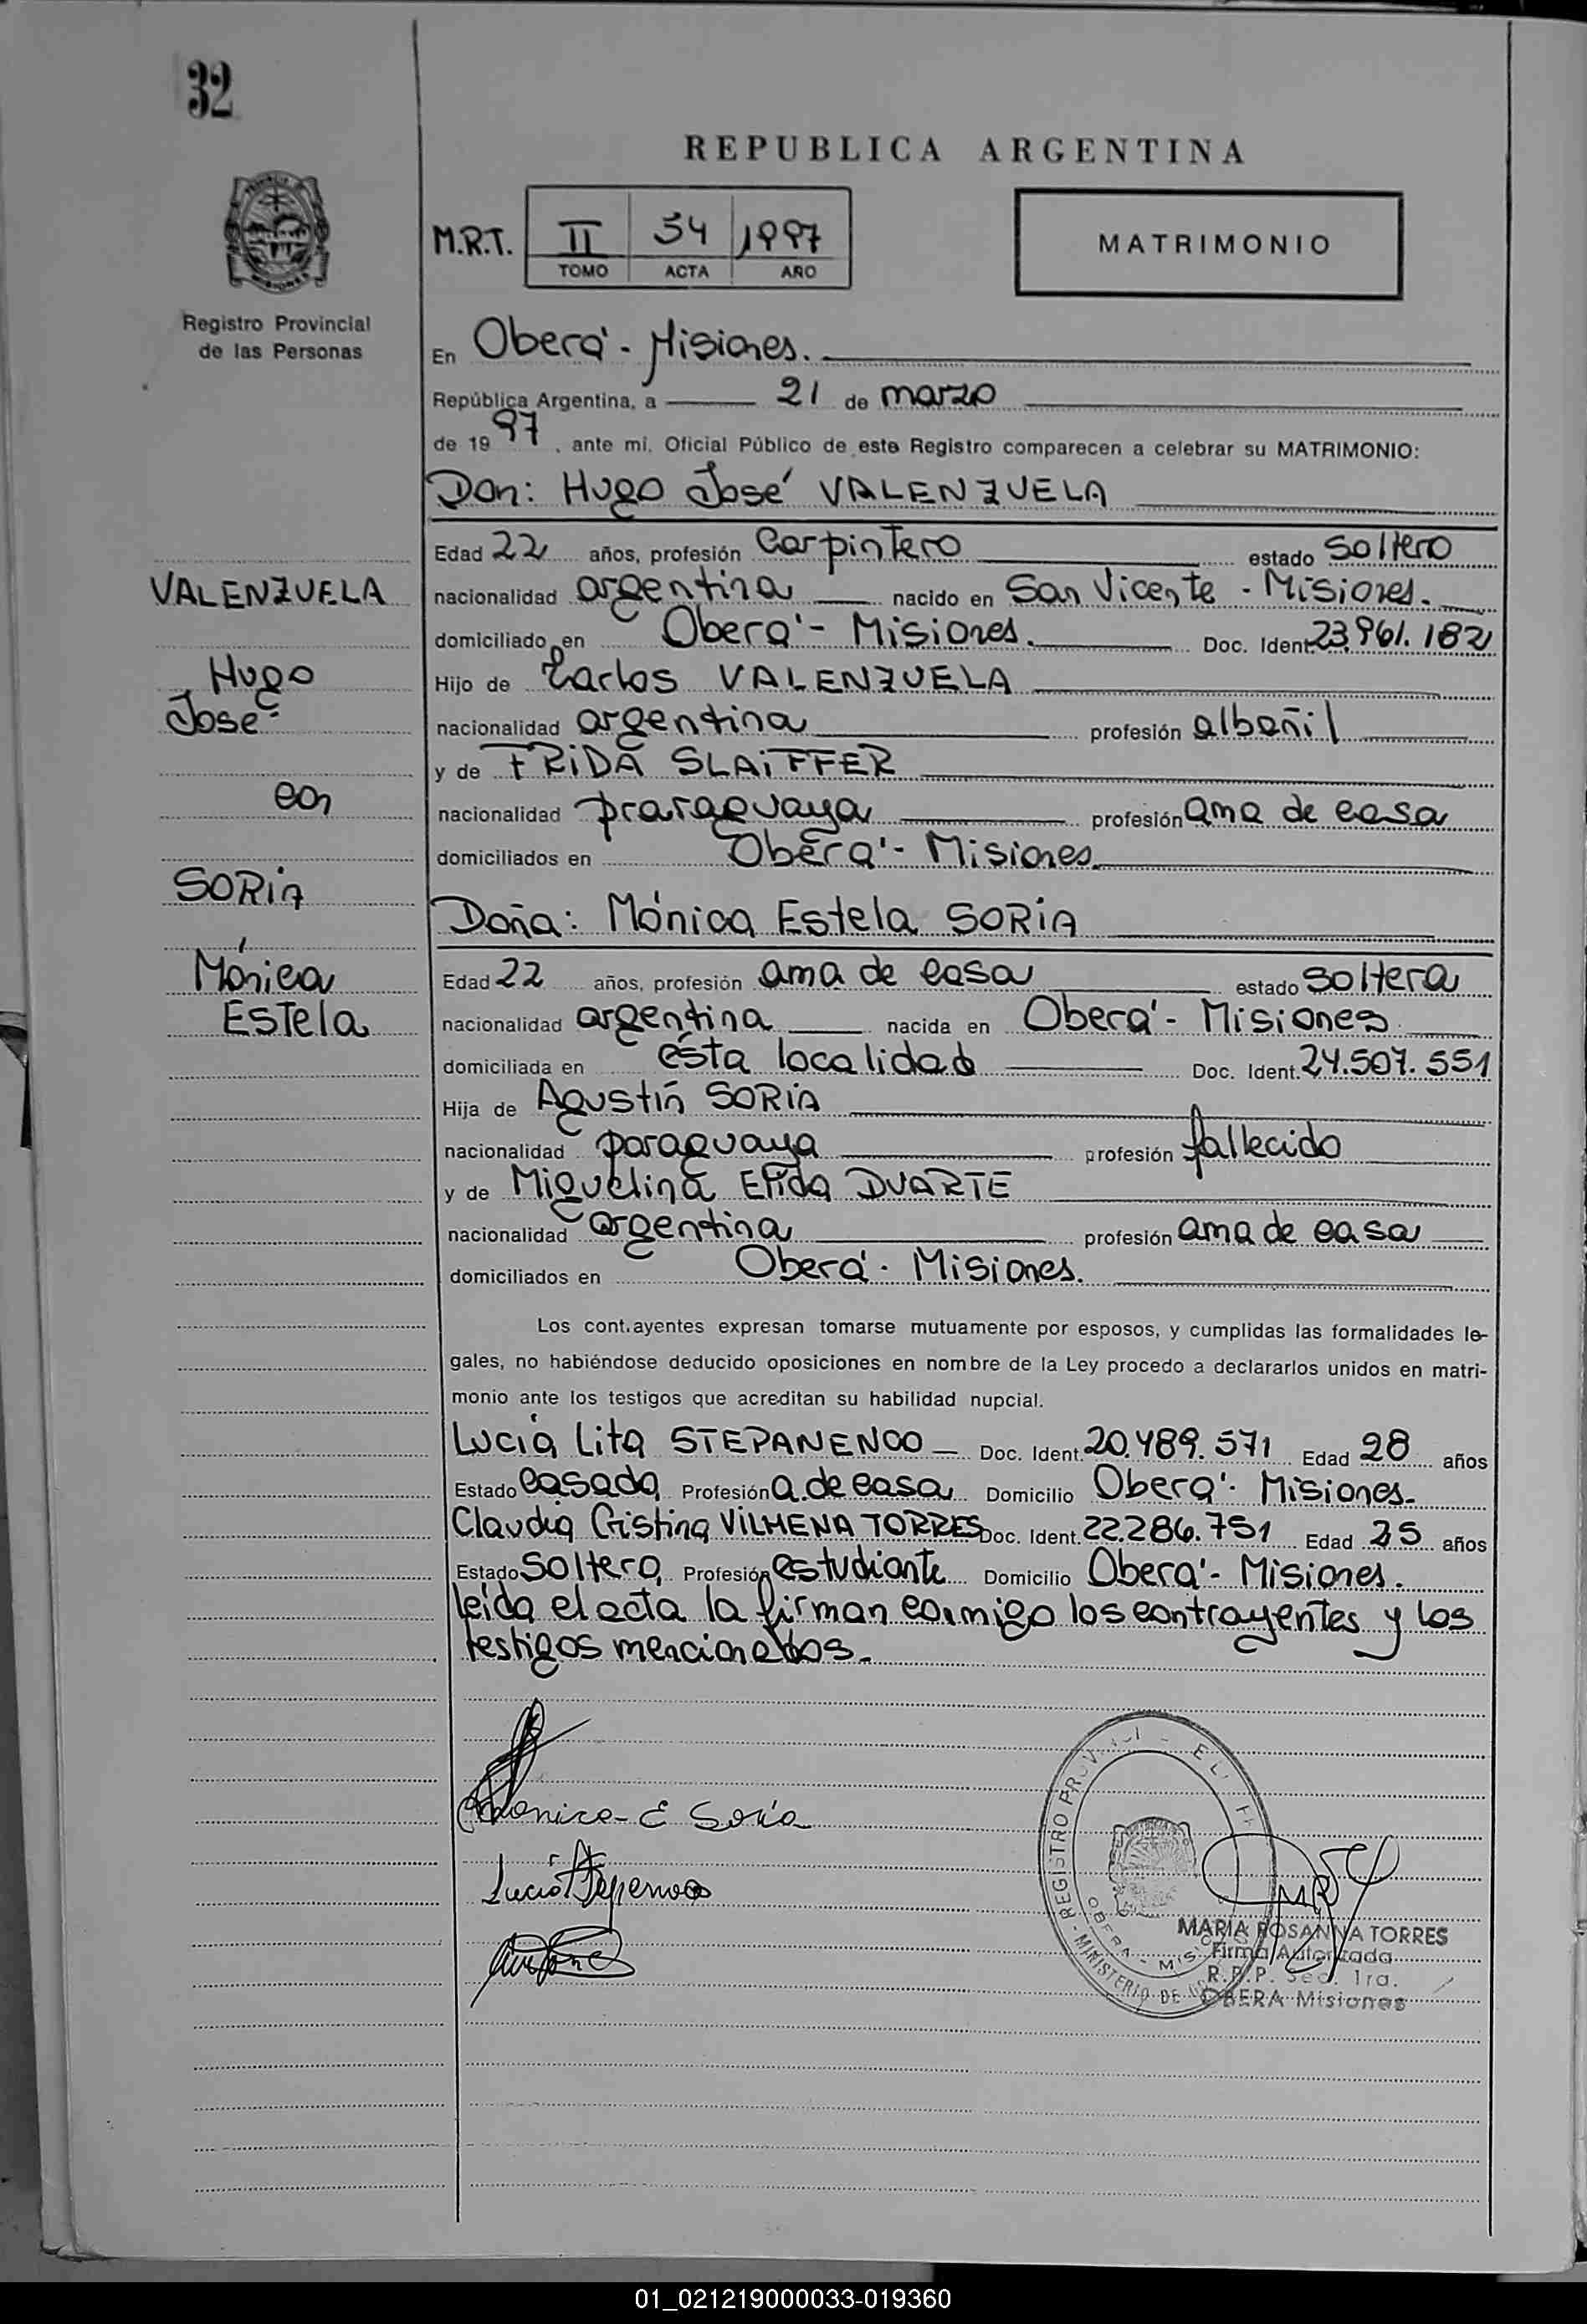 32
REPUBLICA ARGENTINA
M.R.T. II 54 1997
TOMO ACTA AÑO
MATRIMONIO
Registro Provincial
de las Personas
En Oberá - Misiones.
República Argentina, a 21 de marzo
de 19 97, ante mi, Oficial Público de este Registro comparecen a celebrar su MATRIMONIO:
Don: Hugo José VALENZUELA
Edad 22 años, profesión Carpintero estado soltero
VALENZUELA
nacionalidad argentina nacido en San Vicente - Misiones.
domiciliado en Oberá - Misiones. Doc. Ident. 23.961.182
Hugo
Hijo de Carlos VALENZUELA
José
nacionalidad argentina profesión albañil
y de FRIDA SLAIFFER
con
nacionalidad praraguaya profesión ama de casa
domiciliados en Oberá - Misiones
SORIA
Doña: Mónica Estela SORIA
Mónica
Edad 22 años, profesión ama de casa estado soltera
Estela
nacionalidad argentina nacida en Oberá - Misiones
domiciliada en ésta localidad Doc. Ident. 24.507.551
Hija de Agustín SORIA
nacionalidad paraguaya profesión fallecido
y de Miguelina Elida DUARTE
nacionalidad argentina profesión ama de casa
domiciliados en Oberá - Misiones.
Los cont.ayentes expresan tomarse mutuamente por esposos, y cumplidas las formalidades le-
gales, no habiéndose deducido oposiciones en nombre de la Ley procedo a declararlos unidos en matri-
monio ante los testigos que acreditan su habilidad nupcial.
Lucia Lita STEPANENCO Doc. Ident. 20.489.571 Edad 28 años
Estado casada Profesión a. de casa Domicilio Oberá - Misiones.
Claudia Cristina VILHENA TORRES Doc. Ident. 22.286.751 Edad 25 años
Estado soltera Profesión estudiante Domicilio Oberá - Misiones.
leída el acta la firman conmigo los contrayentes y los
testigos mencionados.
Monica E Soria
REGISTRO
MINISTERIO DE
OBERA - MIS
MARIA ROSANNA TORRES
Firma Autorizada
R.P.P. Sec. 1ra.
OBERA Misiones
01_021219000033-019360